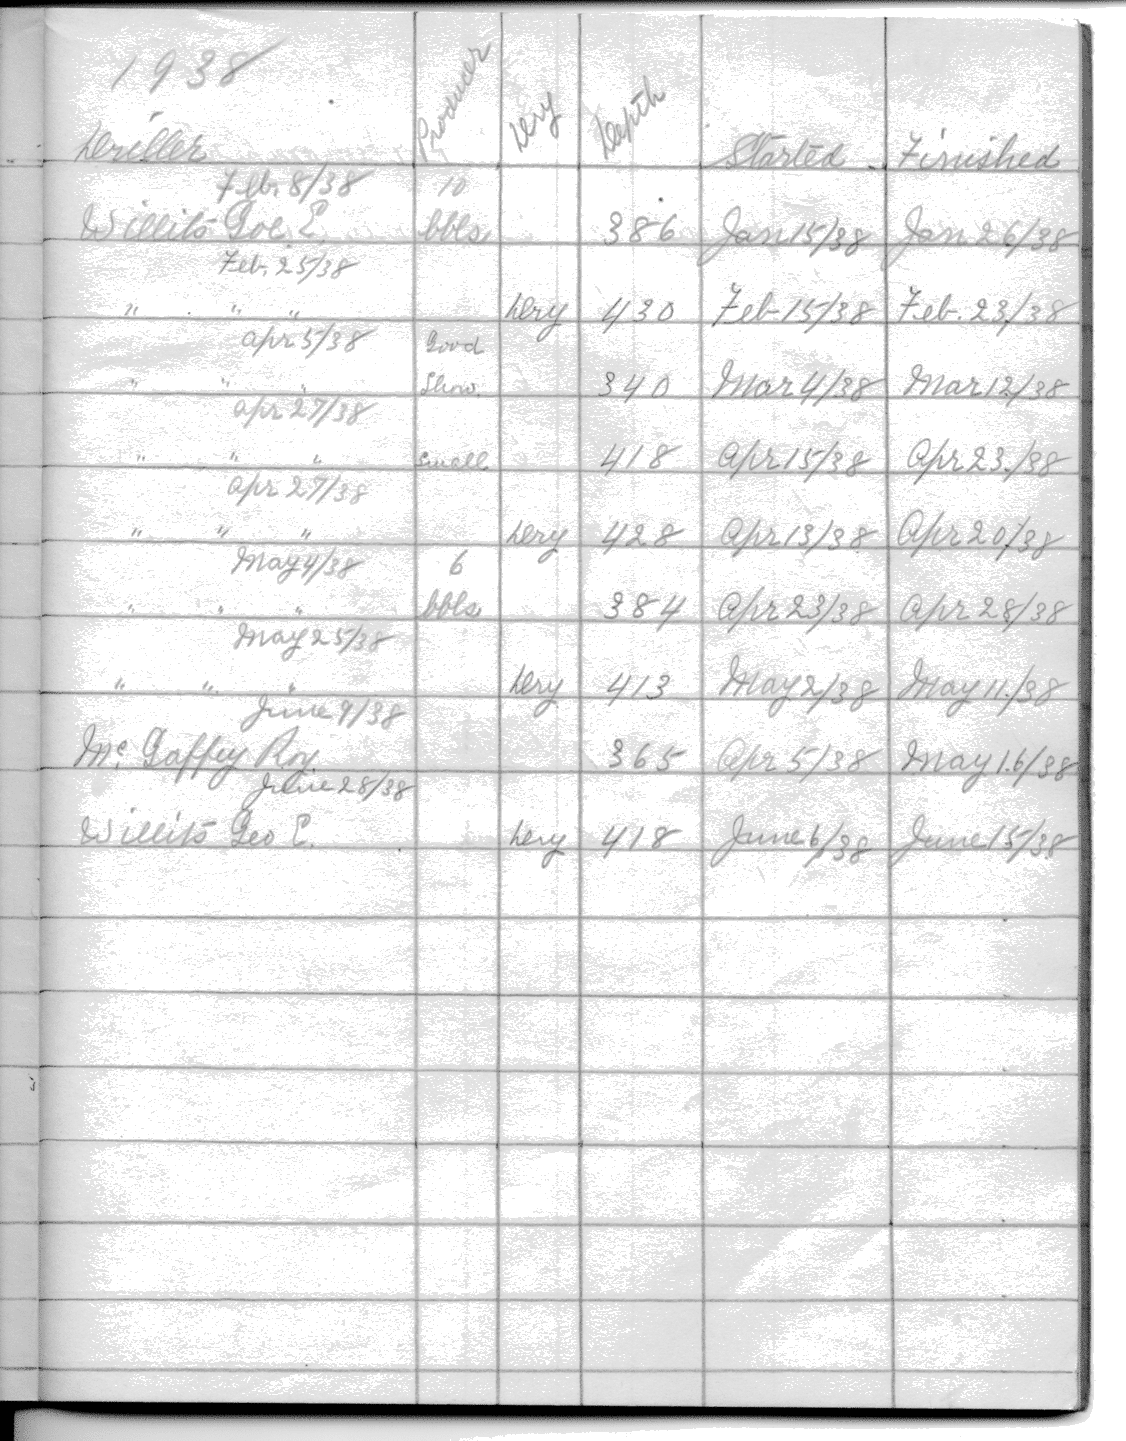 1938
Driller Producer Dry Depth Started Finished
Feb. 8/38 10
Willits Geo E. bbls. 386 Jan 15/38 Jan 26/38
Feb. 25/38
" " " Dry 430 Feb 15/38 Feb. 23/38
Apr 5/38 Good
" " " Show. 340 Mar 4/38 Mar 12/38
Apr 27/38
" " " Small 418 Apr 15/38 Apr 23/38
Apr 27/38
" " " Dry 428 Apr 13/38 Apr 20/38
May 4/38 6
" " " bbls. 384 Apr 23/38 Apr 28/38
May 25/38
" " " Dry 413 May 2/38 May 11/38
June 9/38
Mc Gaffey Roy. 365 Apr 5/38 May 16/38
June 28/38
Willits Geo E. Dry 418 June 6/38 June 15/38